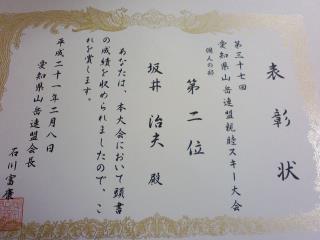 表彰状
第三十七回
愛知県山岳連盟親睦スキー大会
個人の部
第二位
坂井 治夫 殿
あなたは、本大会において頭書
の成績を収められましたので、こ
れを賞します。
平成二十一年二月八日
愛知県山岳連盟会長
石川富康